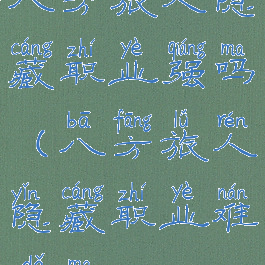 八方旅人隐
cáng zhí yè qiáng ma
藏职业强吗
bā fāng lǚ rén
(八方旅人
yǐn cáng zhí yè nán
隐藏职业难
dǎ ma